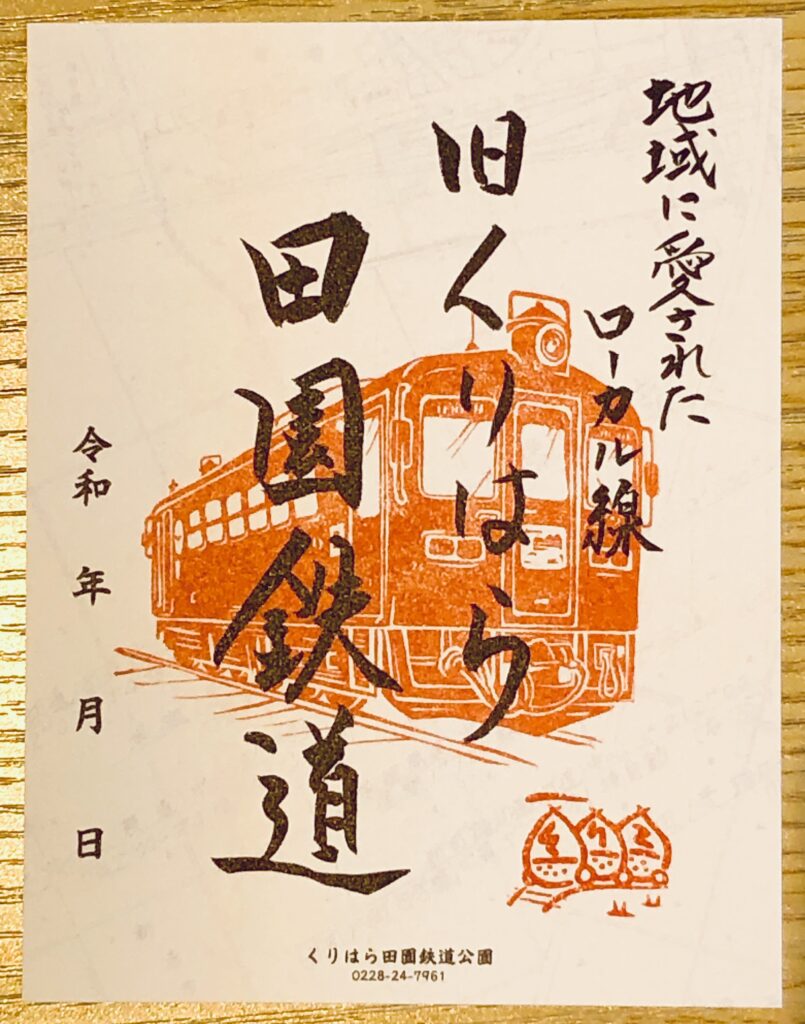 地域に愛された
ローカル線
旧くりはら
田園鉄道
令和 年 月 日
くりはら田園鉄道公園
0228-24-7961